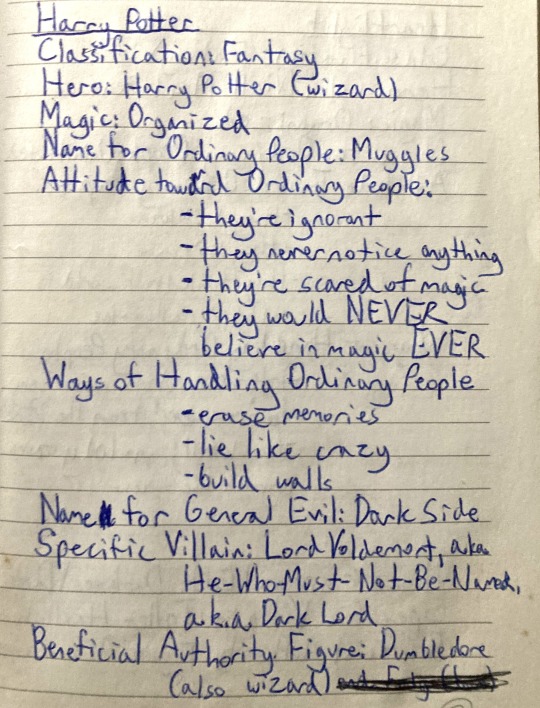 Harry Potter
Classification: Fantasy
Hero: Harry Potter (wizard)
Magic: Organized
Name for Ordinary People: Muggles
Attitude toward Ordinary People:
- they're ignorant
- they never notice anything
- they're scared of magic
- they would NEVER
believe in magic EVER
Ways of Handling Ordinary People
- erase memories
- lie like crazy
- build walls
Name for General Evil: Dark Side
Specific Villain: Lord Voldemort, a.k.a.
He-Who-Must-Not-Be-Named,
a.k.a. Dark Lord
Beneficial Authority Figure: Dumbledore
(also wizard)